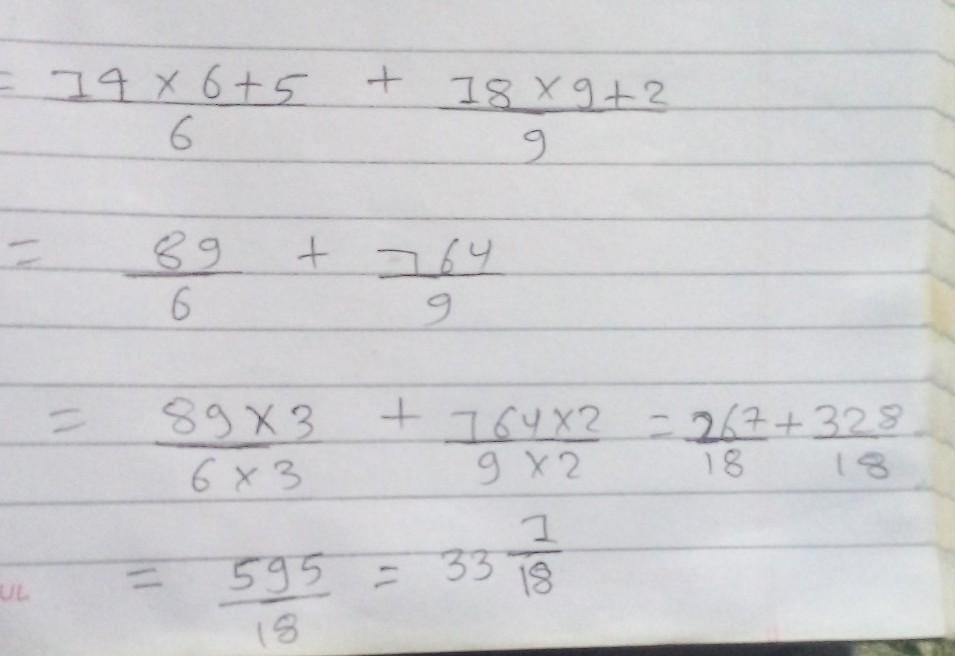 = 14 × 6 + 5 / 6 + 18 × 9 + 2 / 9
= 89 / 6 + 164 / 9
= 89 × 3 / 6 × 3 + 164 × 2 / 9 × 2 = 267 / 18 + 328 / 18
= 595 / 18 = 33 1 / 18
UL